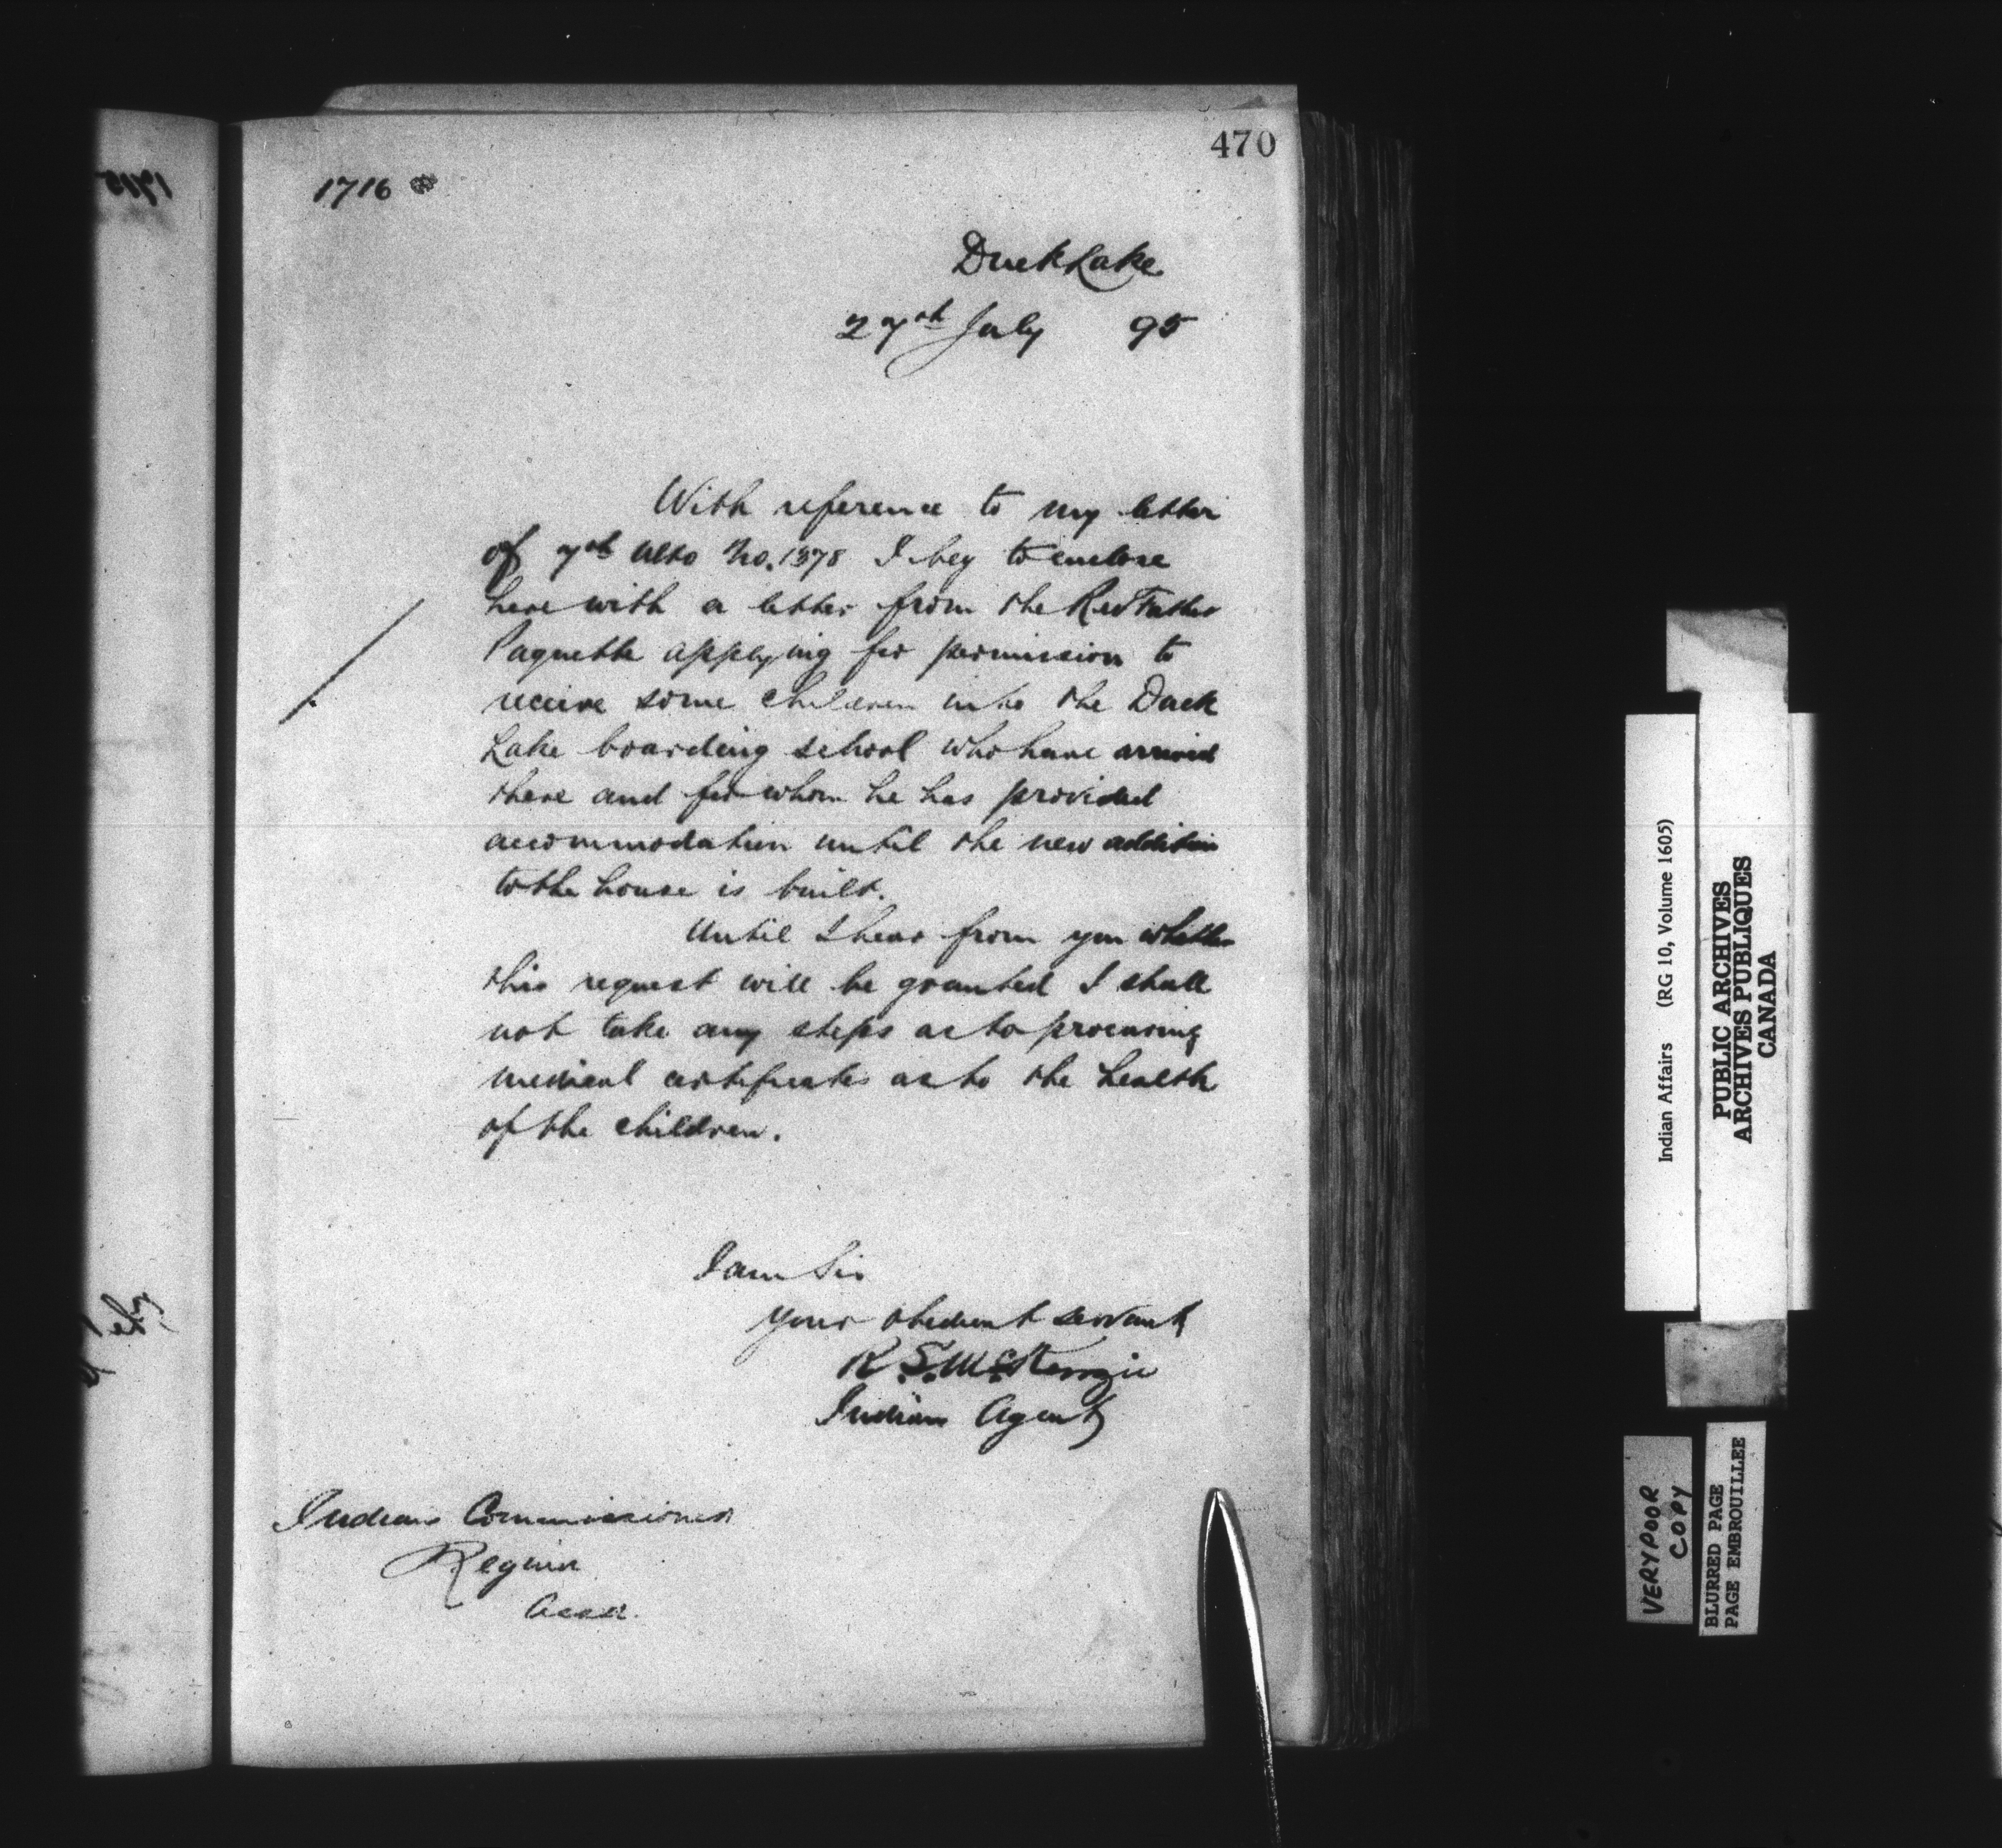 470
1716
Duck Lake
27th July 95
With reference to my letter
of 7th Ulto No. 1378 I beg to enclose
herewith a letter from the Rev Father
Paquette applying for permission to
receive some children into the Duck
Lake boarding school who have arrived
there and for whom he has provided
accommodation until the new addition
to the house is built.
Until I hear from you whether
this request will be granted I shall
not take any steps as to procuring
medical certificates as to the health
of the children.
I am Sir
your obedient servant
R. S. McKenzie
Indian Agent
Indian Commissioner
Regina
Assa.
Indian Affairs (RG 10, Volume 1605)
PUBLIC ARCHIVES
ARCHIVES PUBLIQUES
CANADA
VERY POOR
COPY
BLURRED PAGE
PAGE EMBROUILLEE